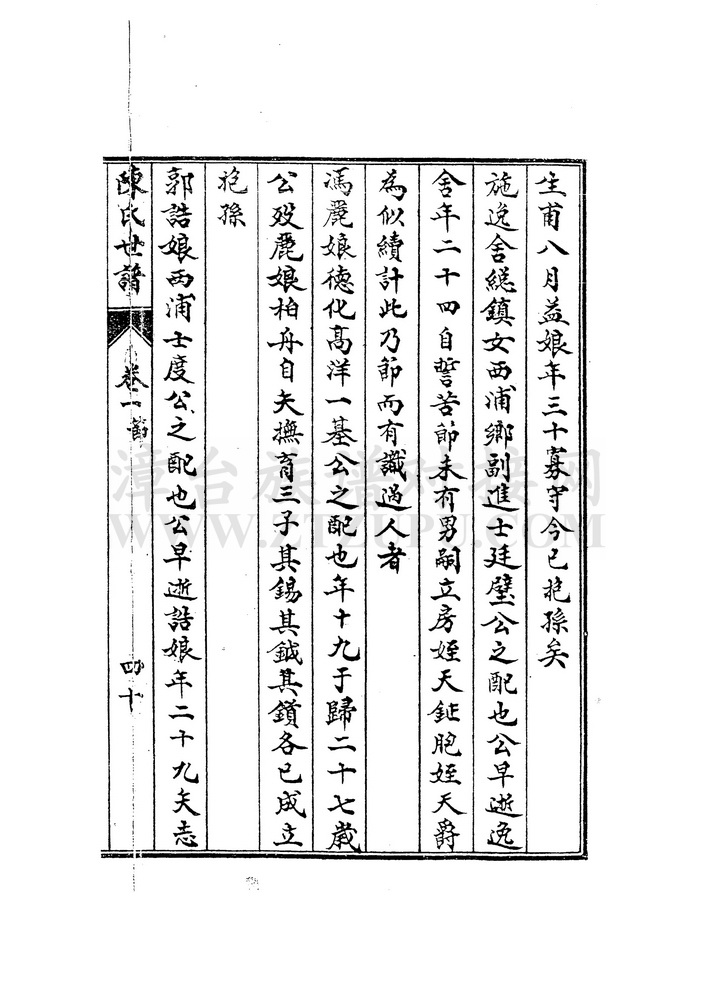 生甫八月益娘年三十寡守今已抱孫矣
施逸舍緫鎮女西浦鄉副進士廷璧公之配也公早逝逸
舍年二十四自誓苦節未有男嗣立房姪天鉦胞姪天爵
為似續計此乃節而有識過人者
馮麗娘德化高洋一基公之配也年十九于歸二十七歲
公歿麗娘柏舟自矢撫育三子其錫其鉞其鑽各已成立
抱孫
郭誥娘西浦士度公之配也公早逝誥娘年二十九矢志
陳氏世譜 卷一 四十
漳台族谱对接网
WWW.ZTZUPU.COM